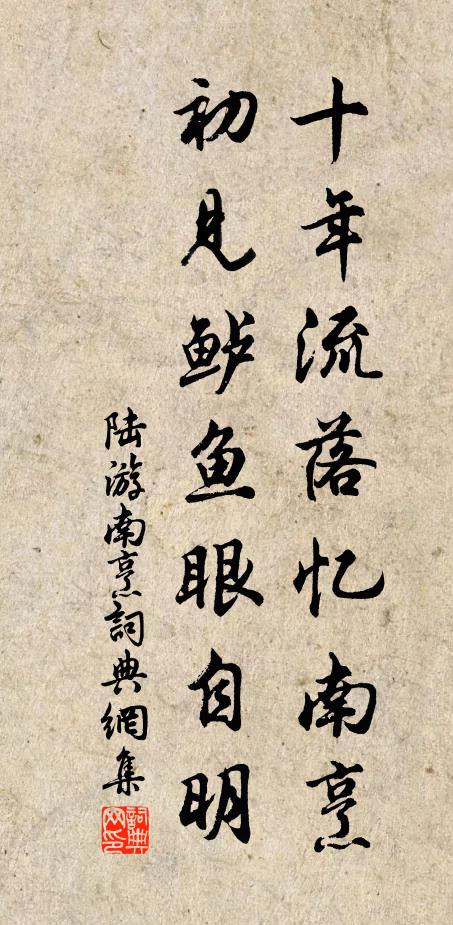 十年流落忆南烹
初见鲈鱼眼自明
陆游南烹詞典網集
詞典网印